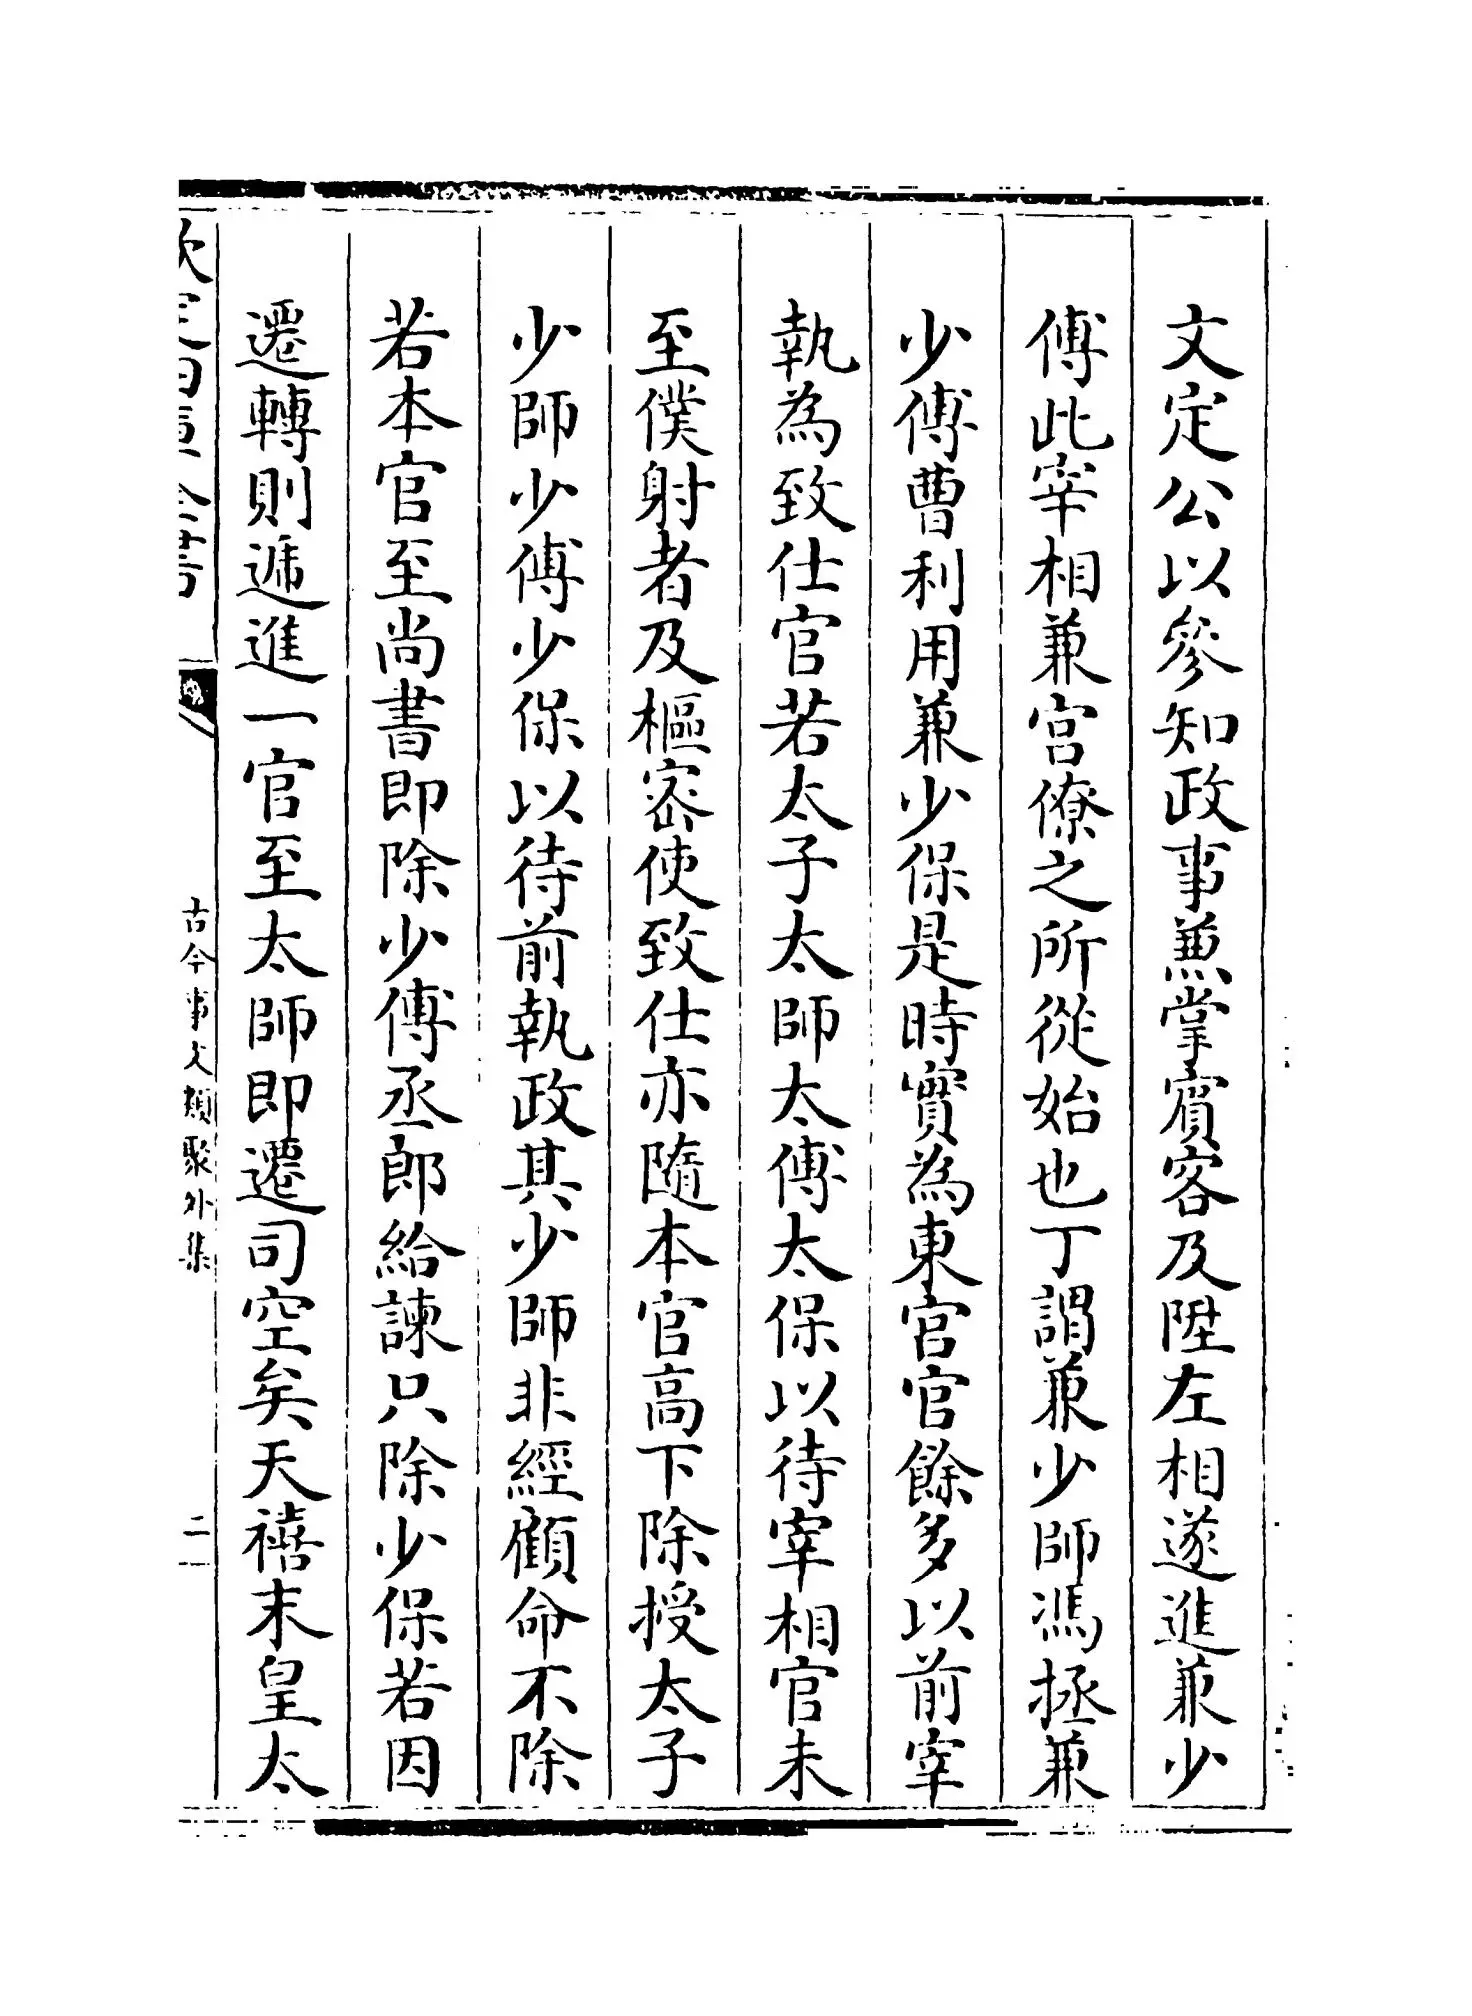 文定公以參知政事兼掌賓客及陞左相遂進兼少
傅此宰相兼宫僚之所從始也丁謂兼少師馮拯兼
少傅曹利用兼少保是時實為東宫官餘多以前宰
執為致仕官若太子太師太傅太保以待宰相官未
至僕射者及樞宻使致仕亦隨本官高下除授太子
少師少傅少保以待前執政其少師非經顧命不除
若本官至尚書即除少傅丞郎給諫只除少保若因
遷轉則遞進一官至太師即遷司空矣天禧末皇太
欽定四庫全書
古今事文類聚外集
二